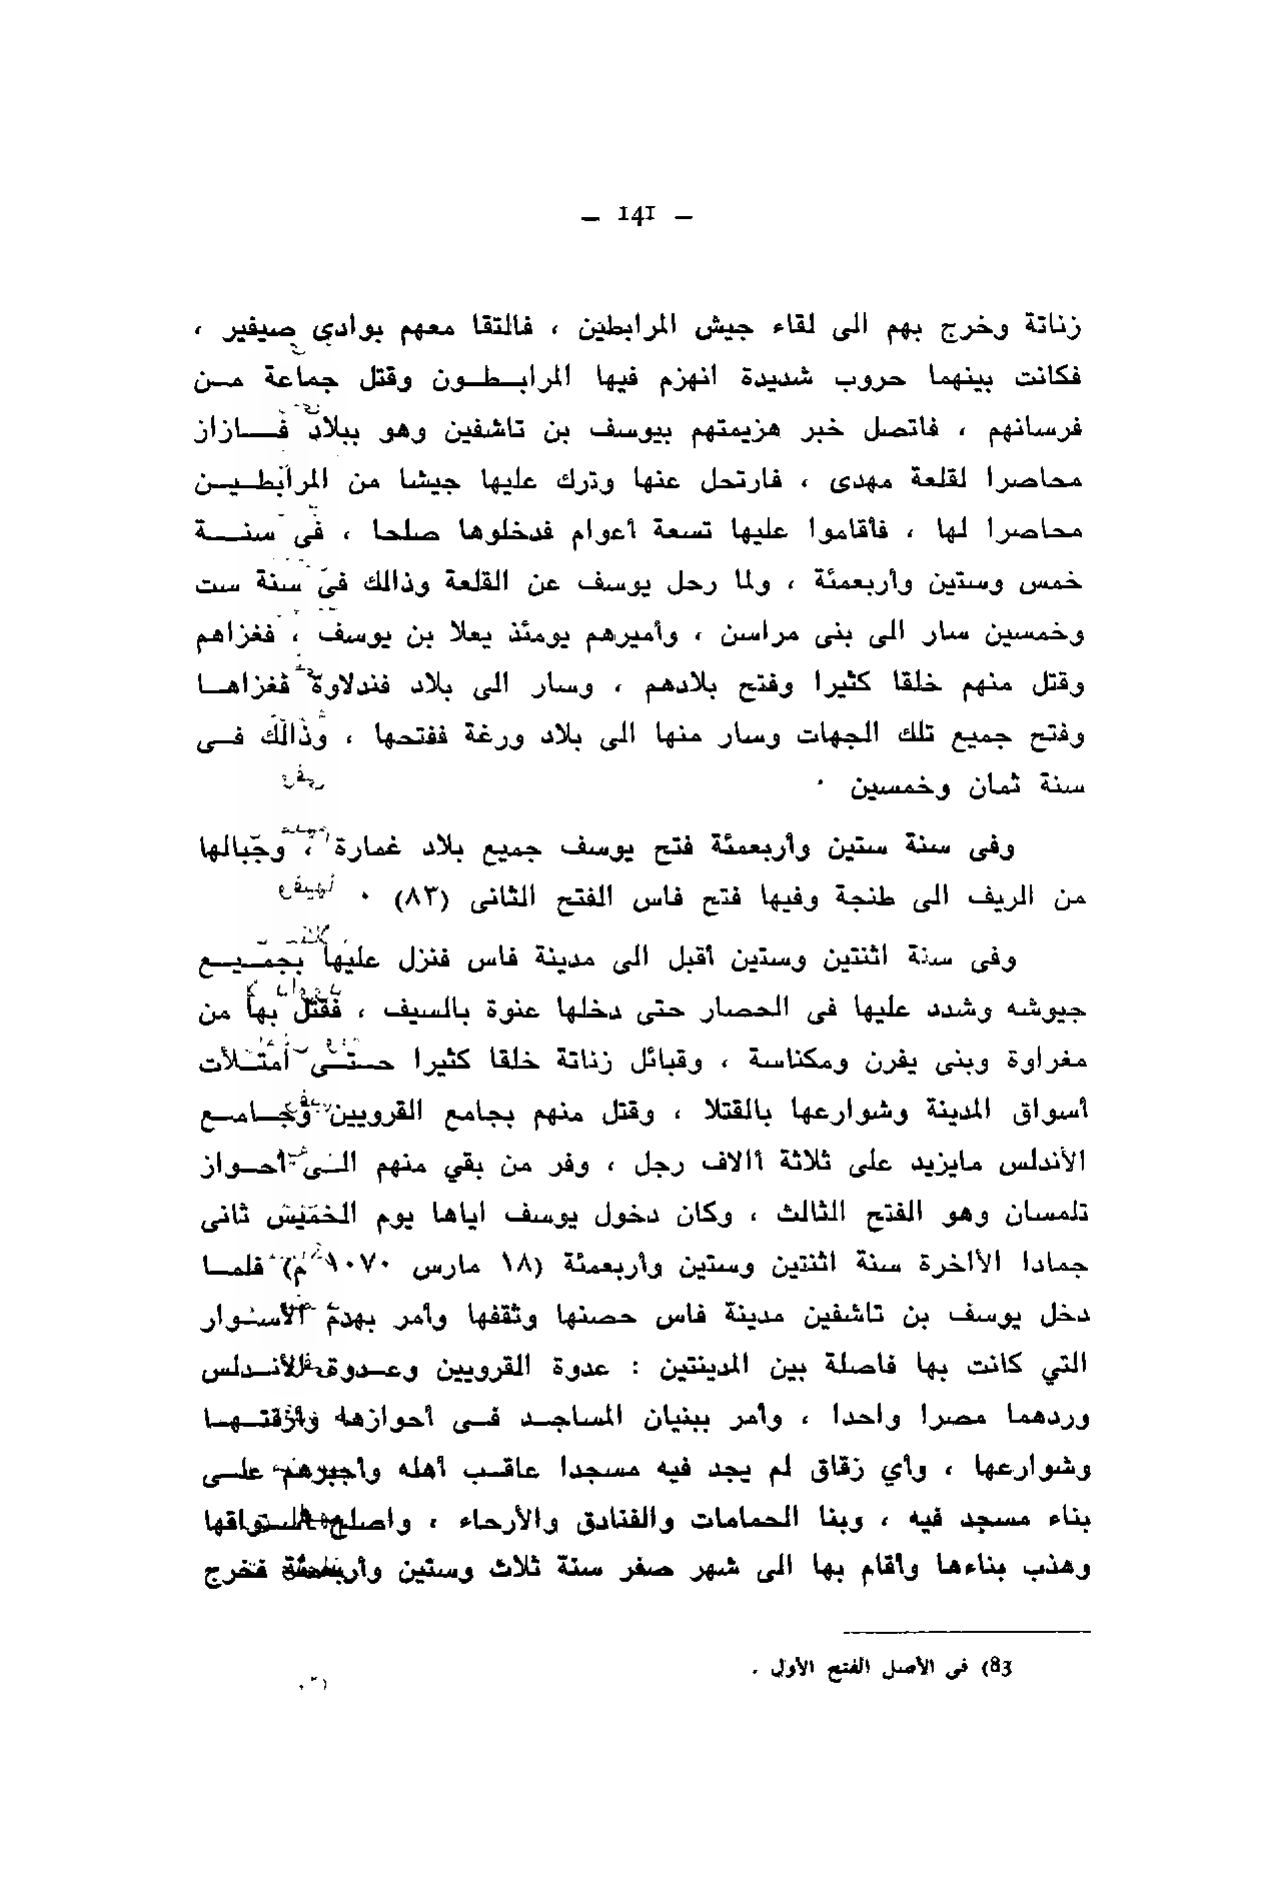 — 141 —
زناتة وخرج بهم الى لقاء جيش المرابطين ، فالتقا معهم بوادي صيفير ،
فكانت بينهما حروب شديدة انهزم فيها المرابطون وقتل جماعة من
فرسانهم ، فاتصل خبر هزيمتهم بيوسف بن تاشفين وهو ببلاد فازاز
محاصرا لقلعة مهدى ، فارتحل عنها وترك عليها جيشا من المرابطين
محاصرا لها ، فأقاموا عليها تسعة أعوام فدخلوها صلحا ، فى سنة
خمس وستين وأربعمئة ، ولما رحل يوسف عن القلعة وذالك فى سنة ست
وخمسين سار الى بنى مراسن ، وأميرهم يومئذ يعلا بن يوسف ، فغزاهم
وقتل منهم خلقا كثيرا وفتح بلادهم ، وسار الى بلاد فندلاوة فغزاها
وفتح جميع تلك الجهات وسار منها الى بلاد ورغة ففتحها ، وذالك فى
سنة ثمان وخمسين .
وفى سنة ستين وأربعمئة فتح يوسف جميع بلاد غمارة ، وجبالها
من الريف الى طنجة وفيها فتح فاس الفتح الثانى (٨٣) .
وفى سنة اثنتين وستين أقبل الى مدينة فاس فنزل عليها بجميع
جيوشه وشدد عليها فى الحصار حتى دخلها عنوة بالسيف ، فقتل بها من
مغراوة وبنى يفرن ومكناسة ، وقبائل زناتة خلقا كثيرا حتى امتلأت
أسواق المدينة وشوارعها بالقتلا ، وقتل منهم بجامع القرويين وجامع
الأندلس مايزيد على ثلاثة أالاف رجل ، وفر من بقي منهم الى أحواز
تلمسان وهو الفتح الثالث ، وكان دخول يوسف اياها يوم الخميس ثانى
جمادا الأاخرة سنة اثنتين وستين وأربعمئة (١٨ مارس ١٠٧٠ م) فلما
دخل يوسف بن تاشفين مدينة فاس حصنها وثقفها وأمر بهدم الأسوار
التي كانت بها فاصلة بين المدينتين : عدوة القرويين وعدوة الأندلس
وردهما مصرا واحدا ، وأمر ببنيان المساجد فى أحوازها وأزقتها
وشوارعها ، وأي زقاق لم يجد فيه مسجدا عاقب أهله وأجبرهم على
بناء مسجد فيه ، وبنا الحمامات والفنادق والأرحاء ، واصلح أسواقها
وهذب بناءها وأقام بها الى شهر صفر سنة ثلاث وستين وأربعمئة فخرج
83) فى الأصل الفتح الأول .